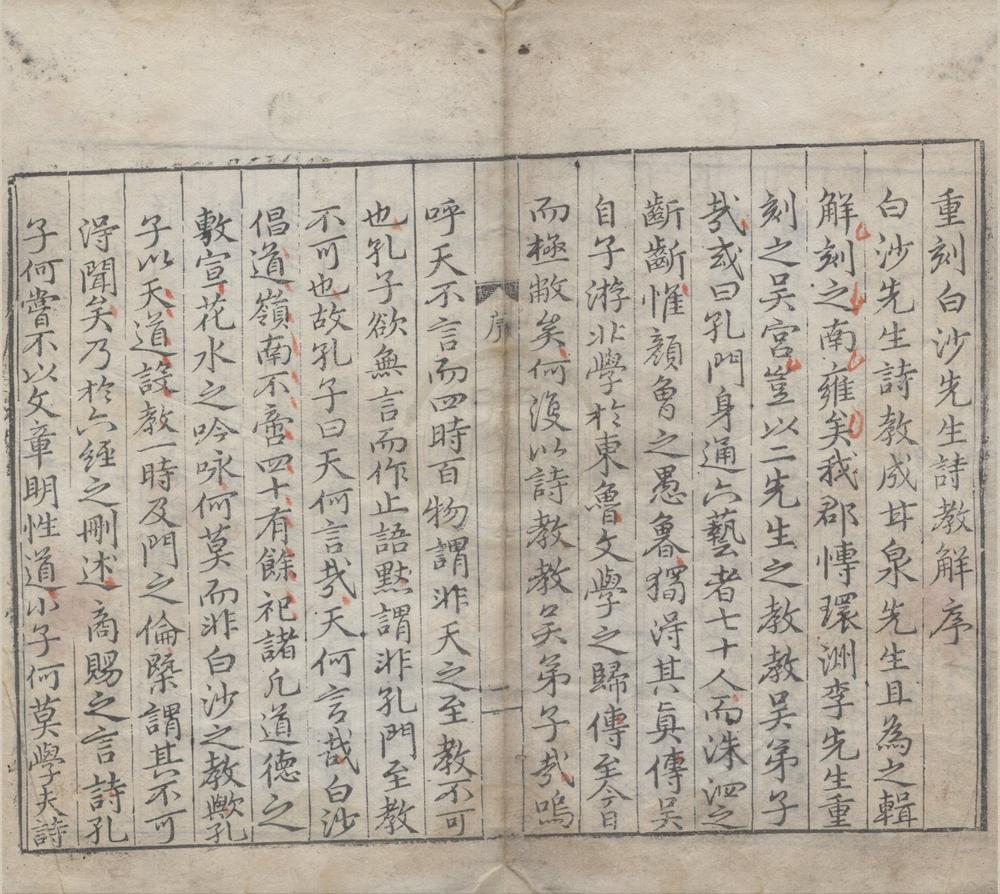 重刻白沙先生詩教解序
白沙先生詩教成甘泉先生且為之輯
解刻之南雍矣我郡慱環洲李先生重
刻之吴宮豈以二先生之教教吴弟子
㦲或曰孔門身通六藝者七十人而洙泗之
齗齗惟顔曾之愚魯獨淂其真傳吴
自子游北學於東魯文學之歸傳至今日
而極敝矣何復以詩教教吴弟子㦲嗚
呼天不言而四時百物謂非天之至教不可
也孔子欲無言而作止語默謂非孔門至教
不可也故孔子曰天何言㦲天何言㦲白沙
倡道嶺南不啻四十有餘祀諸凢道徳之
敷宣花水之吟咏何莫而非白沙之教歟孔
子以天道設教一時及門之倫槩謂其不可
淂聞矣乃於六經之刪述商賜之言詩孔
子何嘗不以文章明性道小子何莫學夫詩
序
一